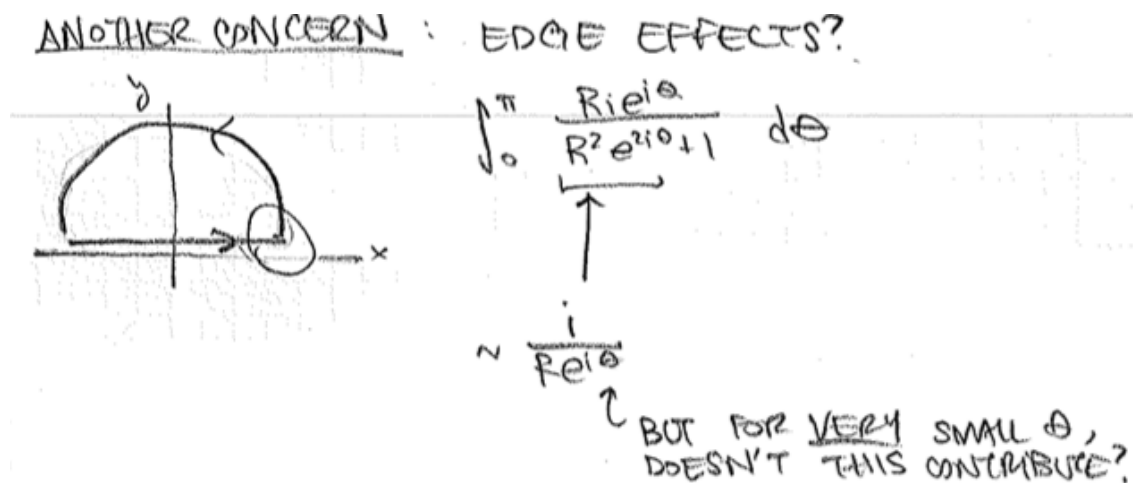 ANOTHER CONCERN : EDGE EFFECTS?
y
x
∫₀^π Rie^{iθ} / R²e^{2iθ}+1 dθ
~ i / Re^{iθ}
BUT FOR VERY SMALL θ,
DOESN'T THIS CONTRIBUTE?